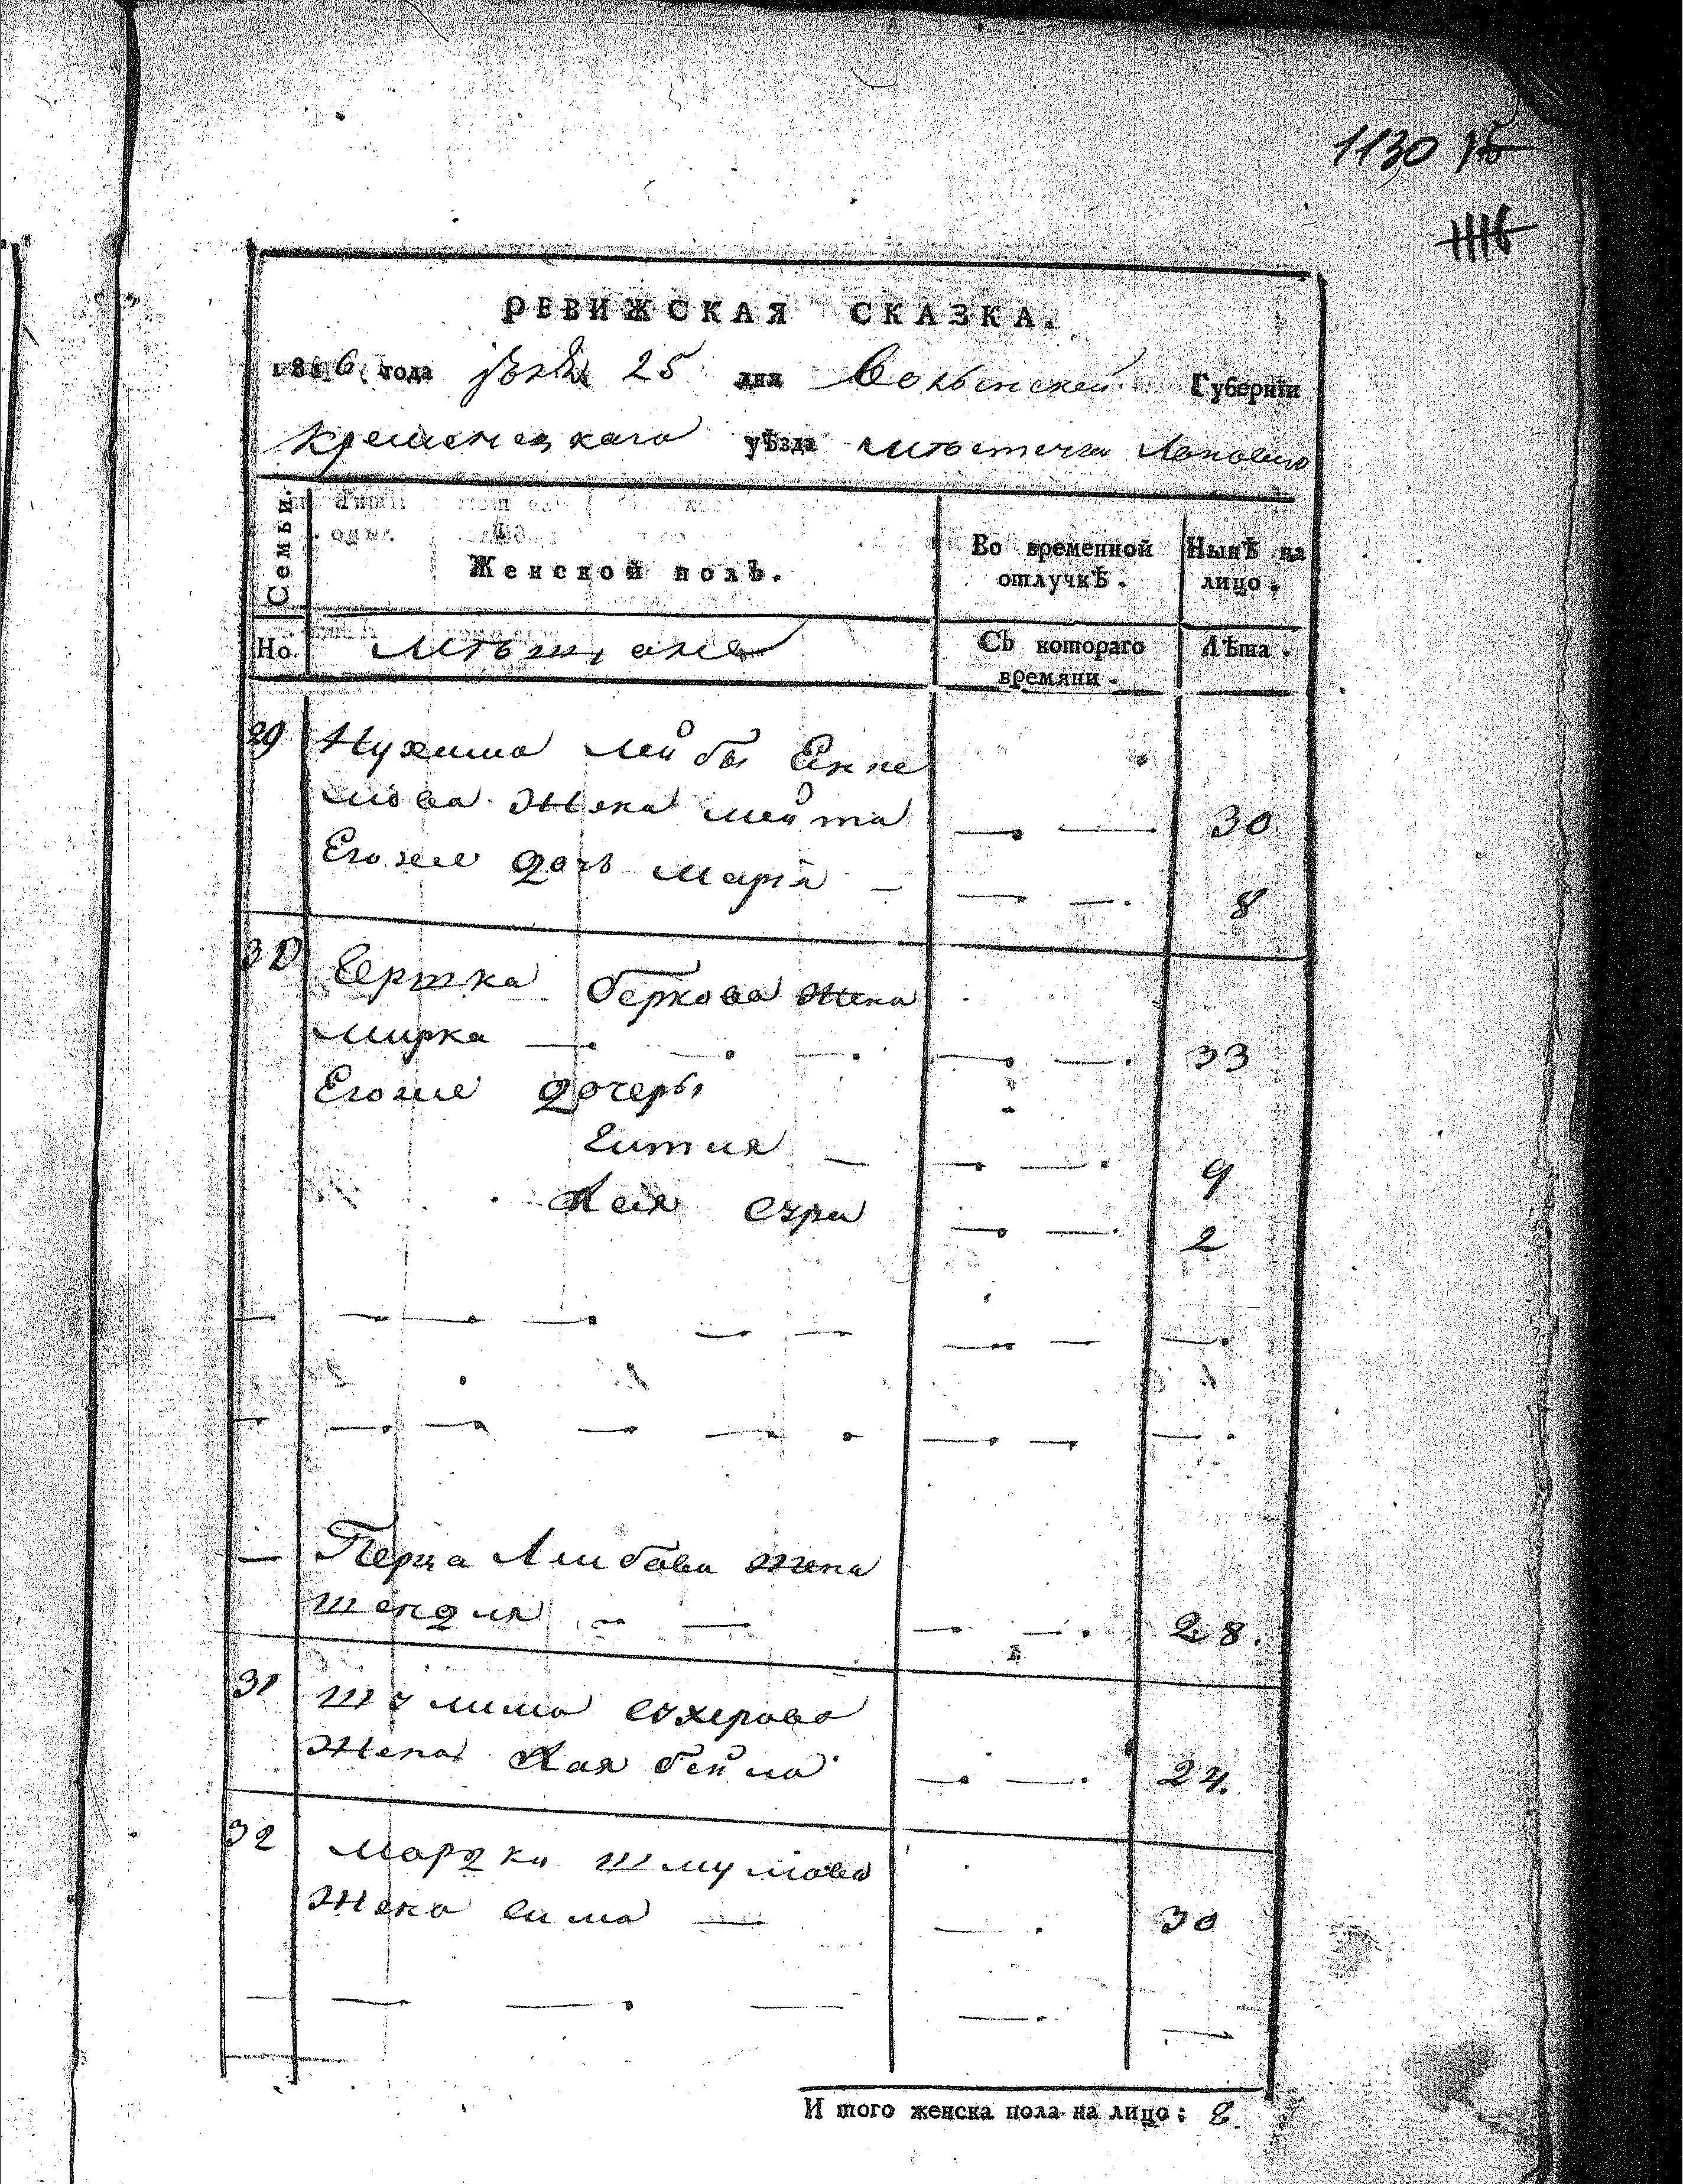 1130 15
1116
РЕВИЖСКАЯ СКАЗКА.
1816 года 25 дня Волынской Губерніи
Кременецкаго уѣзда мѣстечка
Семьи.
Женской полъ.
Во временной
отлучкѣ.
Нынѣ на
лицо.
Но.
Мѣщане
Съ котораго
времяни.
Лѣта.
29 Нухима Лейбы
жена Лейта — — 30
Егоже дочь Марія — — — 8
30 Берковa жена
Мирка — — — — — 33
Егоже дочеры
— — — 9
Хая Сура — — 2
— — — — — — — — — —
— — — — — — — — — —
— Перца Лейбова жена
Шендля — — — — 28.
31 Шлиома Сухерова
жена Хая Бейла — — 24.
32 Мордки Шмулова
жена Сима — — 30
— — — — — —
И того женска пола на лицо: 8